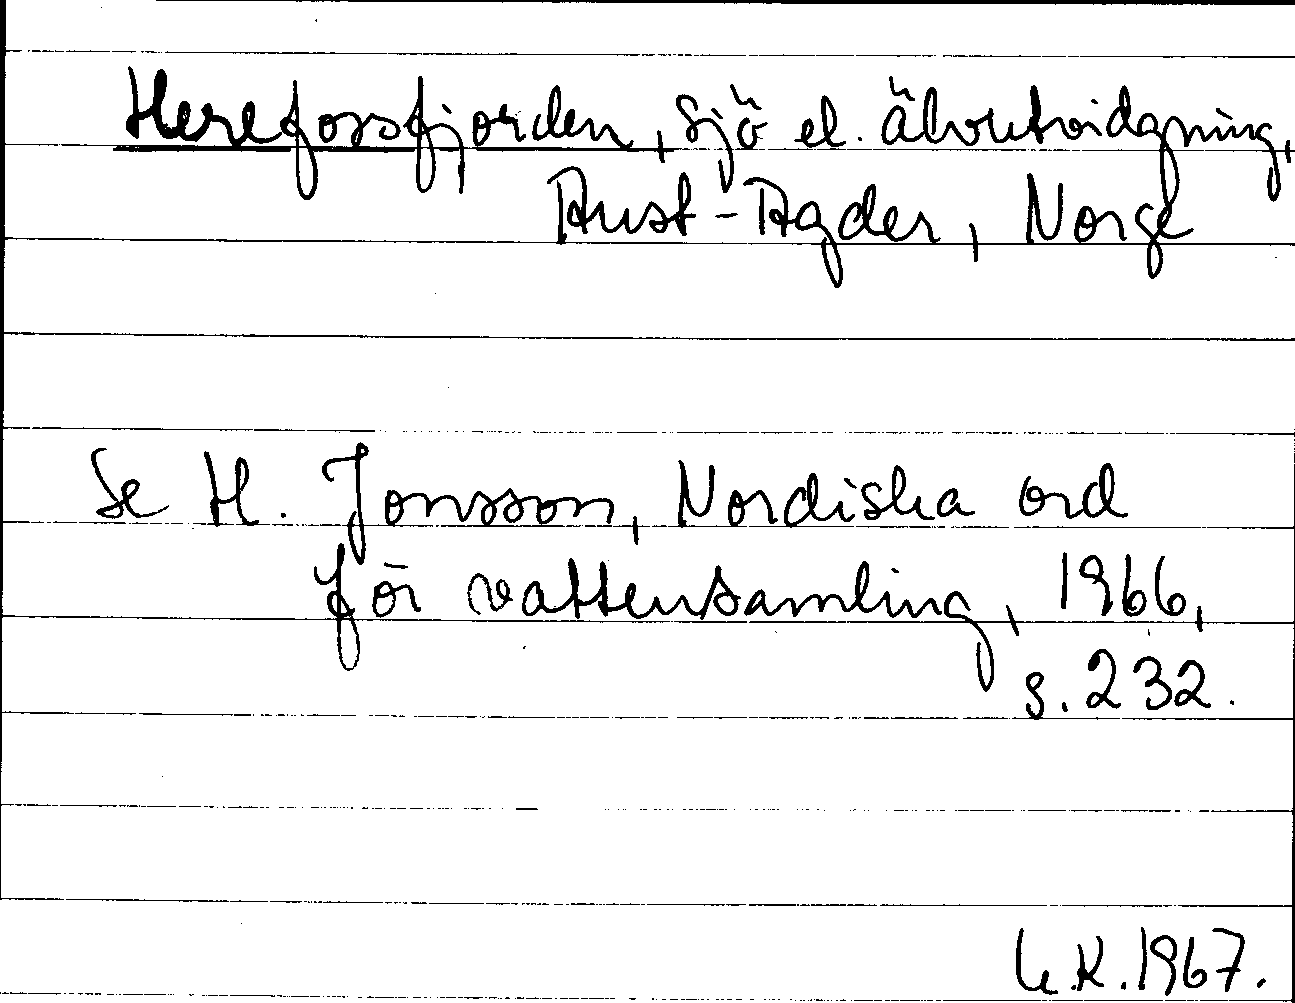 Herefossfjorden, sjö el. älvutvidgning,
Aust-Agder, Norge
Se H. Jonsson, Nordiska ord
för vattensamling, 1966,
s. 232.
K. 1967.